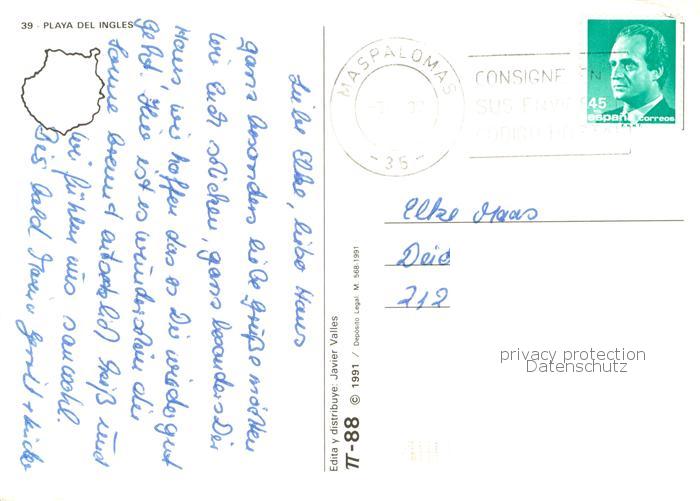 39 - PLAYA DEL INGLES
Liebe Elke, liebe Haus
ganz besonders liebe Grüße möchten
wir euch schicken, ganz besonders Dir
Haus wir hoffen das es Dir wieder gut
geht! Hier ist es wunderschön die
Sonne brennt heiß und
wir fühlen uns sauwohl.
Bis bald Gerrit +
Edita y distribuye: Javier Valles
π-88 © 1991 / Depósito Legal: M. 568-1991
MASPALOMAS
- 35 -
CONSIGNE EN
SUS ENVIOS
CODIGO POSTAL
45
españa correos
Elke Maas
212
privacy protection
Datenschutz